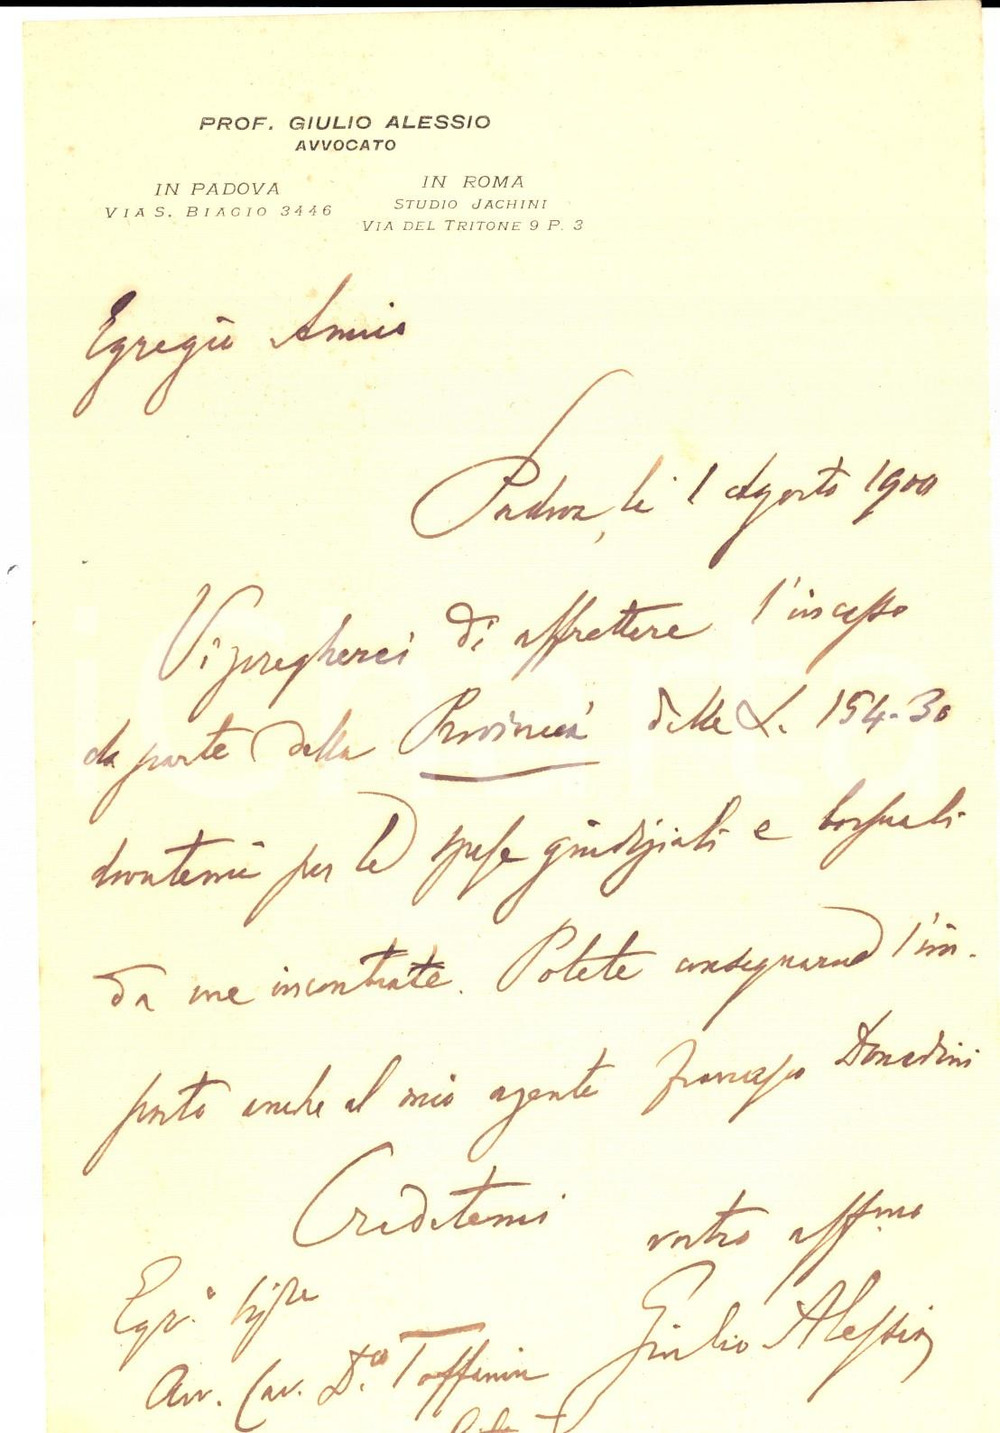 PROF. GIULIO ALESSIO
AVVOCATO
IN PADOVA
VIA S. BIAGIO 3446
IN ROMA
STUDIO JACHINI
VIA DEL TRITONE 9 P. 3
Egregio Amico
Padova, li 1 Agosto 1900
Vi pregherei di affrettare l'incasso
da parte della Provincia delle L. 154.30
dovutemi per le spese giudiziali e
da me incontrate. Potete consegnarne l'im-
porto anche al mio agente Francesco Donadini
Credetemi
vostro aff.mo
Giulio Alessio
Egr.
Avv. Cav. D.r Toffanin